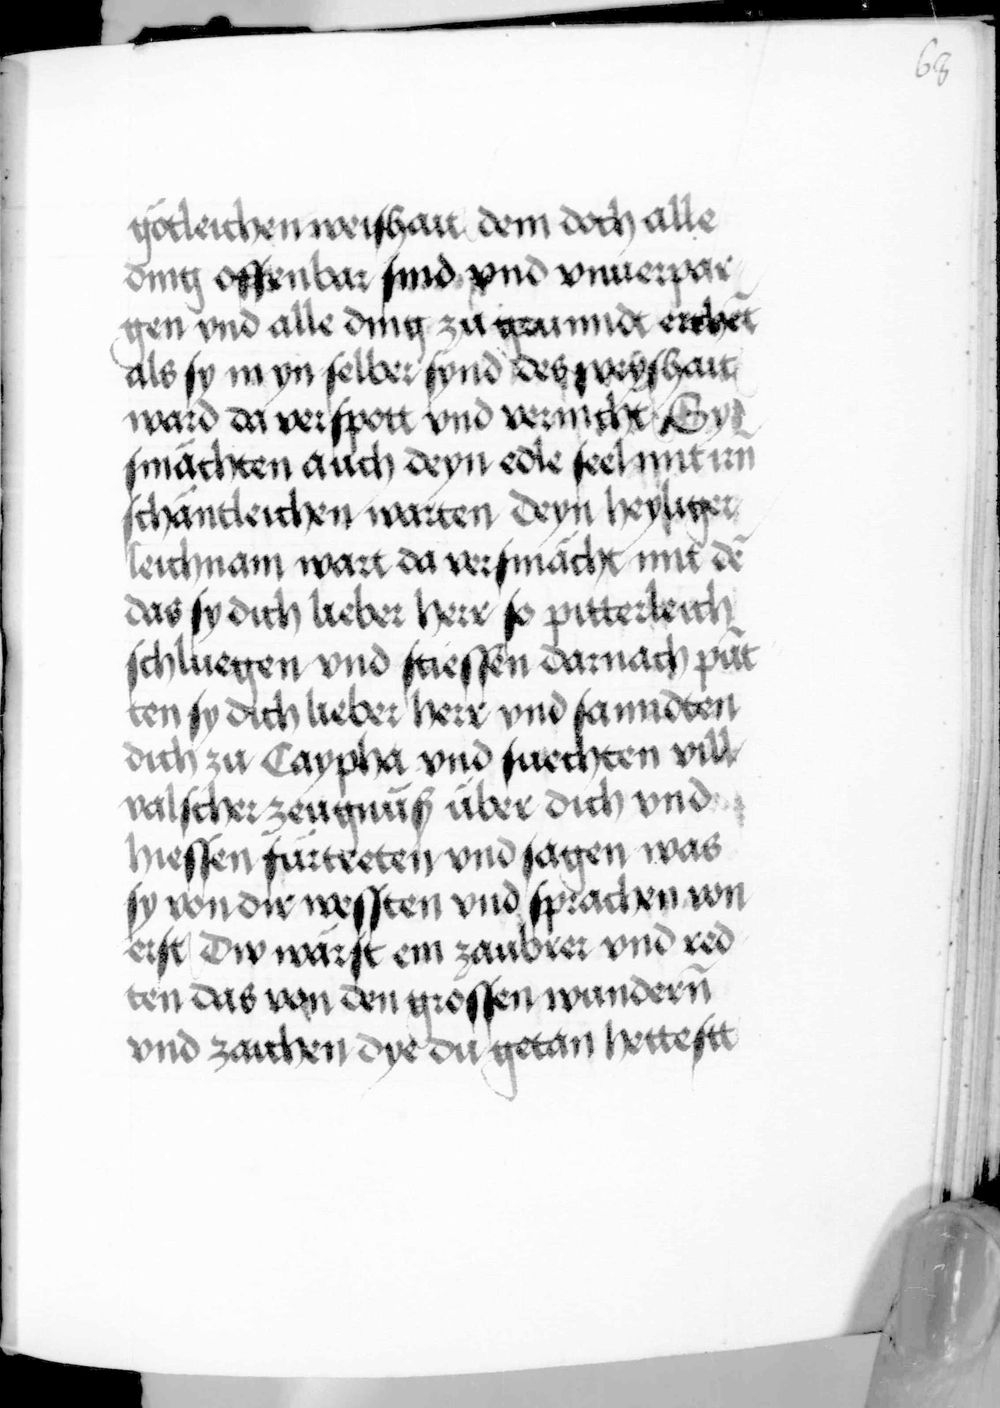 68
götleichen weishait dem doch alle
ding offenbar sind vnd vnuerpar
gen vnd alle ding zu grunndt erchēt
als sy in yn selber synd des weyshait
ward da verspott vnd vernicht Sy
smächten auch deyn edle seel mit irn̄
schäntleichen warten Deyn heyliger
leichnam wart da versmächt mit dē
das sy dich lieber herr so pitterleich
schluegen vnd stiessen darnach pūt
ten sy dich lieber herr vnd sanndten
dich zu Caypha vnd suechten vill
valscher zeugnüß über dich vnd
hiessen fürtreten vnd sagen was
sy von dir wessten vnd sprachen von
erst Dw wärst ein zaubrer vnd red
ten das von den grossen wundern̄
vnd zaichen dye du getan hettestt